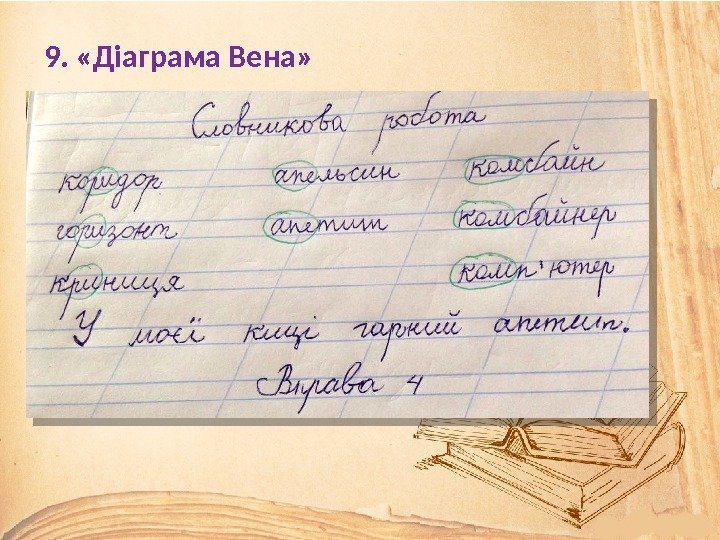 9. «Діаграма Вена»
Словникова робота
коридор апельсин комбайн
горизонт апетит комбайнер
криниця комп'ютер
У моєї киці гарний апетит.
Вправа 4